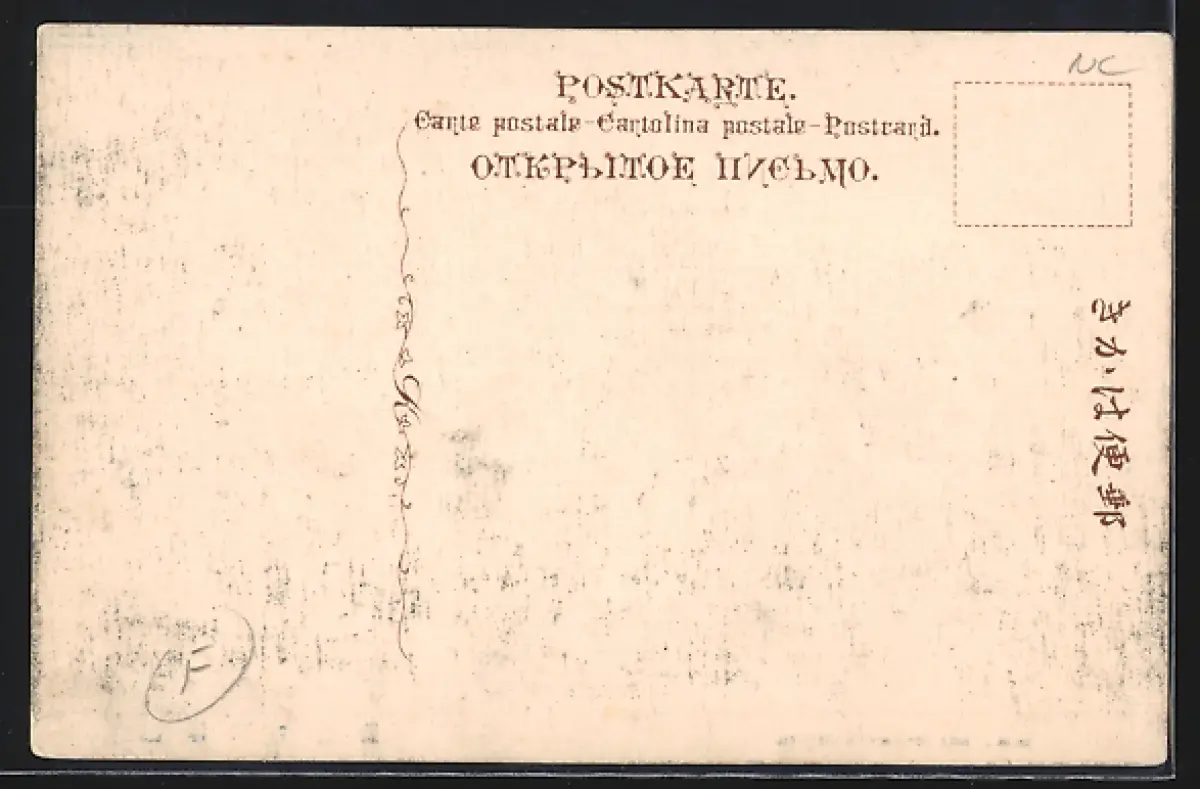 NC
POSTKARTE.
Carte postale-Cartolina postale-Postcard.
ОТКРЫТОЕ ПИСЬМО.
きかは便郵
F